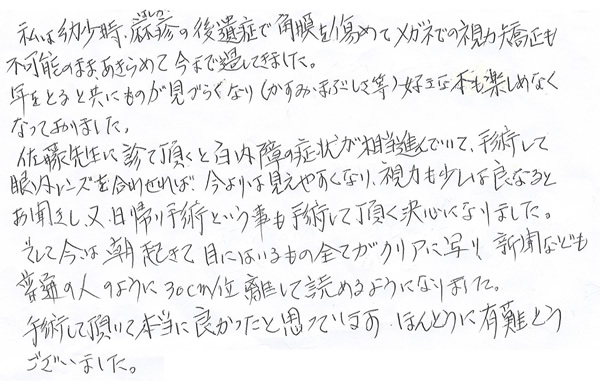 はしか
私は幼少時、麻疹の後遺症で角膜を傷めてメガネでの視力矯正も
不可能のままあきらめて今まで過してきました。
年をとると共にものが見づらくなり(かすみ・まぶしさ等)好きな本も楽しめなく
なっておりました。
佐藤先生に診て頂くと白内障の症状が相当進んでいて、手術して
眼内レンズを合わせれば、今よりは見えやすくなり、視力も少しは良なると
お聞きし、又、日帰り手術という事も手術して頂く決心になりました。
そして今では朝起きて目にはいるもの全てがクリアに写り、新聞なども
普通の人のように30cm位離して読めるようになりました。
手術して頂いて本当に良かったと思っています。ほんとうに有難とう
ございました。